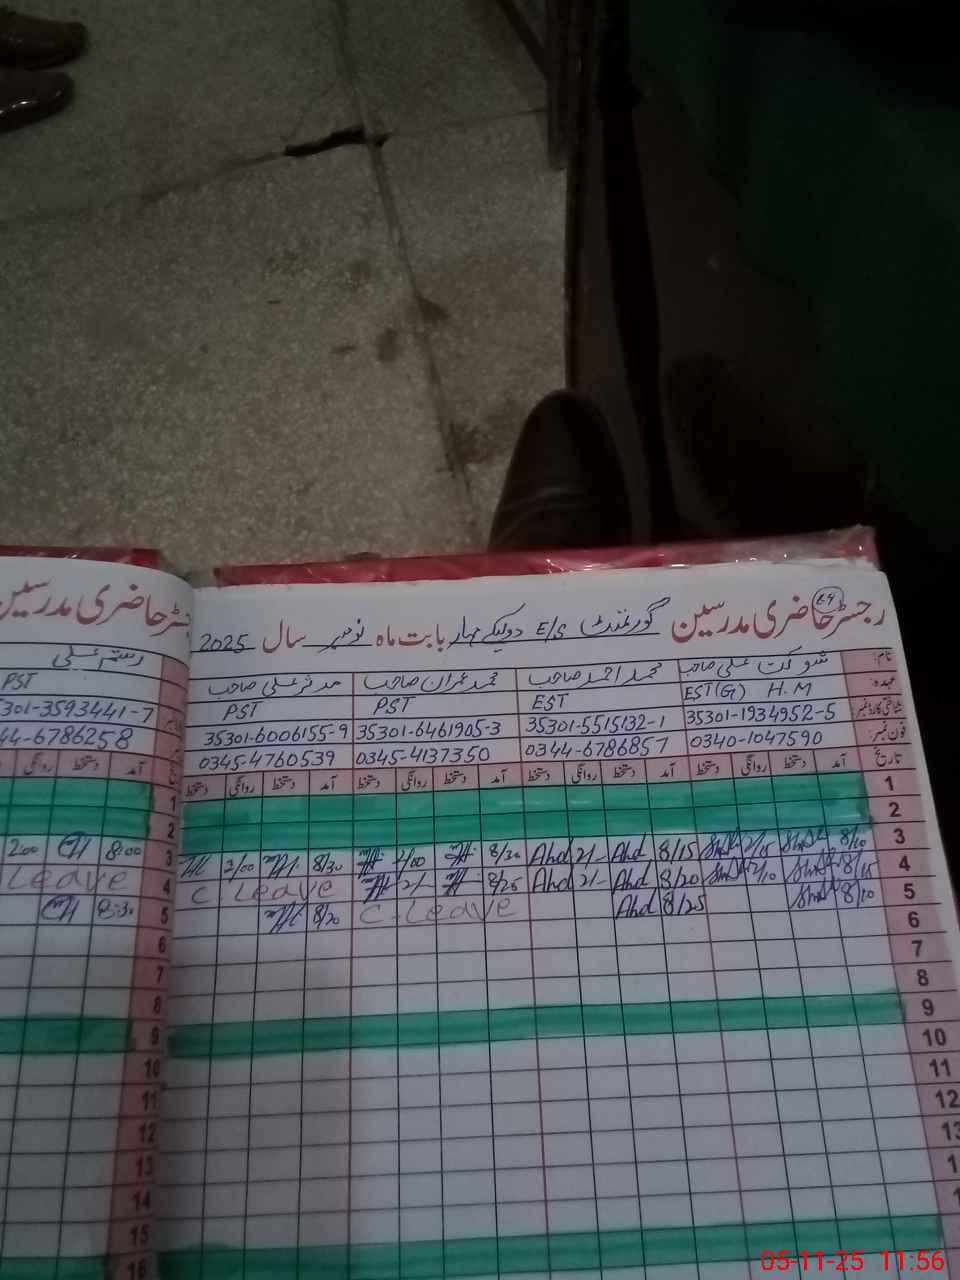 رجسٹر حاضری مدرسین گورنمنٹ E/S دولیکے مہار بابت ماہ نومبر سال 2025
نام: شوکت علی صاحب محمد احمد صاحب محمد عمران صاحب مدثر علی صاحب
عہدہ: EST(G) H.M EST PST PST
شناختی کارڈ نمبر: 35301-1934952-5 35301-5515132-1 35301-6461905-3 35301-6006155-9
فون نمبر: 0340-1047590 0344-6786857 0345-4137350 0345-4760539
تاریخ آمد دستخط روانگی دستخط آمد دستخط روانگی دستخط آمد دستخط روانگی دستخط آمد دستخط روانگی دستخط
1
2
3 8/10 2/15 8/15 Ahd 2/- Ahd 8/30 2/00 8/30 2/00
4 8/15 2/10 8/20 Ahd 2/- Ahd 8/25 2/- C. Leave
5 8/10 8/25 Ahd C. Leave 8/20
6
7
8
9
10
11
12
13
1
1
رجسٹر حاضری مدرسین
رستم علی
PST
301-3593441-7
44-6786258
آمد دستخط روانگی
1
2
3 8:00 2:00
4 Leave
5 8:30
6
7
8
9
10
11
12
13
14
15
16
05-11-25 11:56